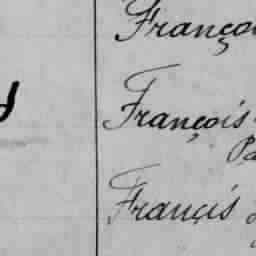 Franço
François
Pa
Françis